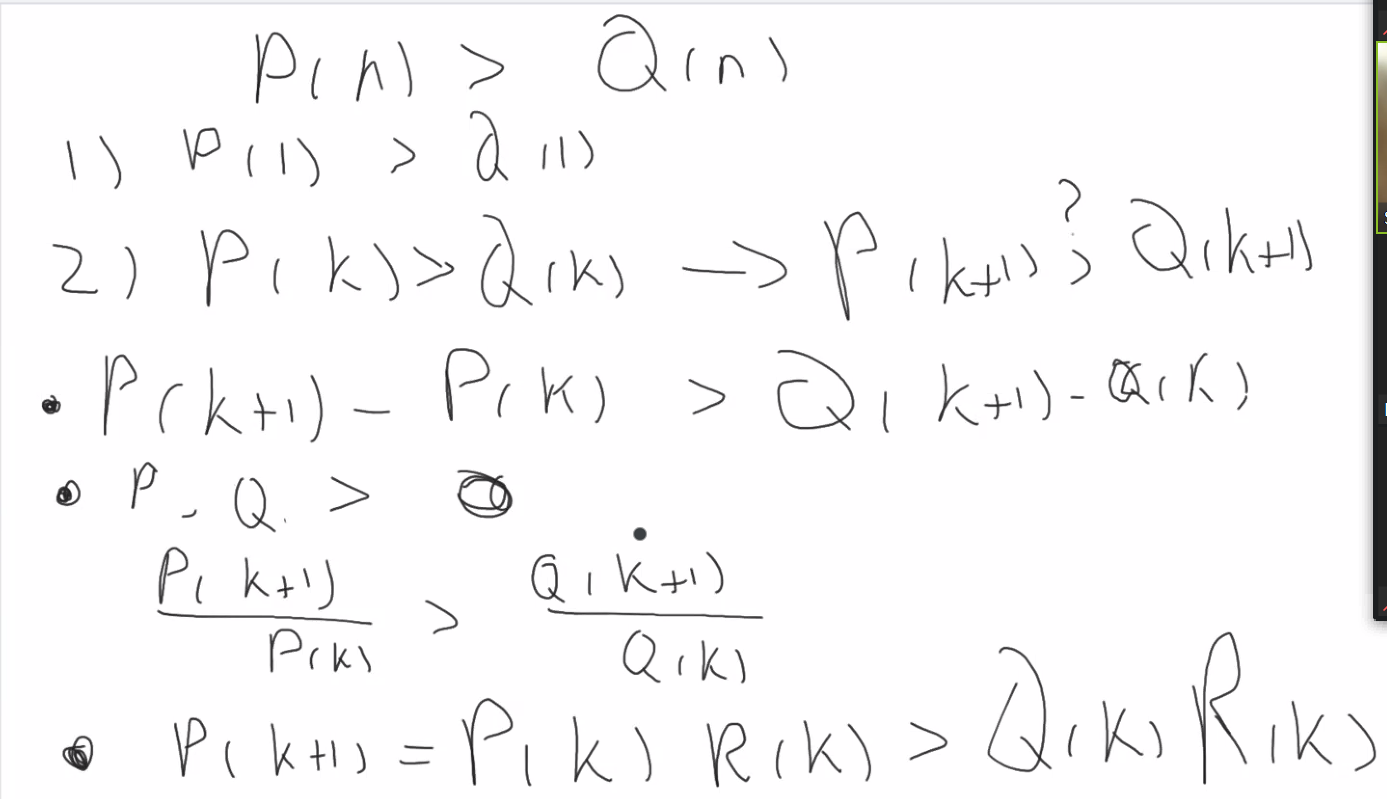 P(n) > Q(n)
1) P(1) > Q(1)
2) P(k) > Q(k) → P(k+1) >? Q(k+1)
• P(k+1) - P(k) > Q(k+1) - Q(k)
• P, Q > 0
P(k+1)/P(k) > Q(k+1)/Q(k)
• P(k+1) = P(k) R(k) > Q(k) R(k)